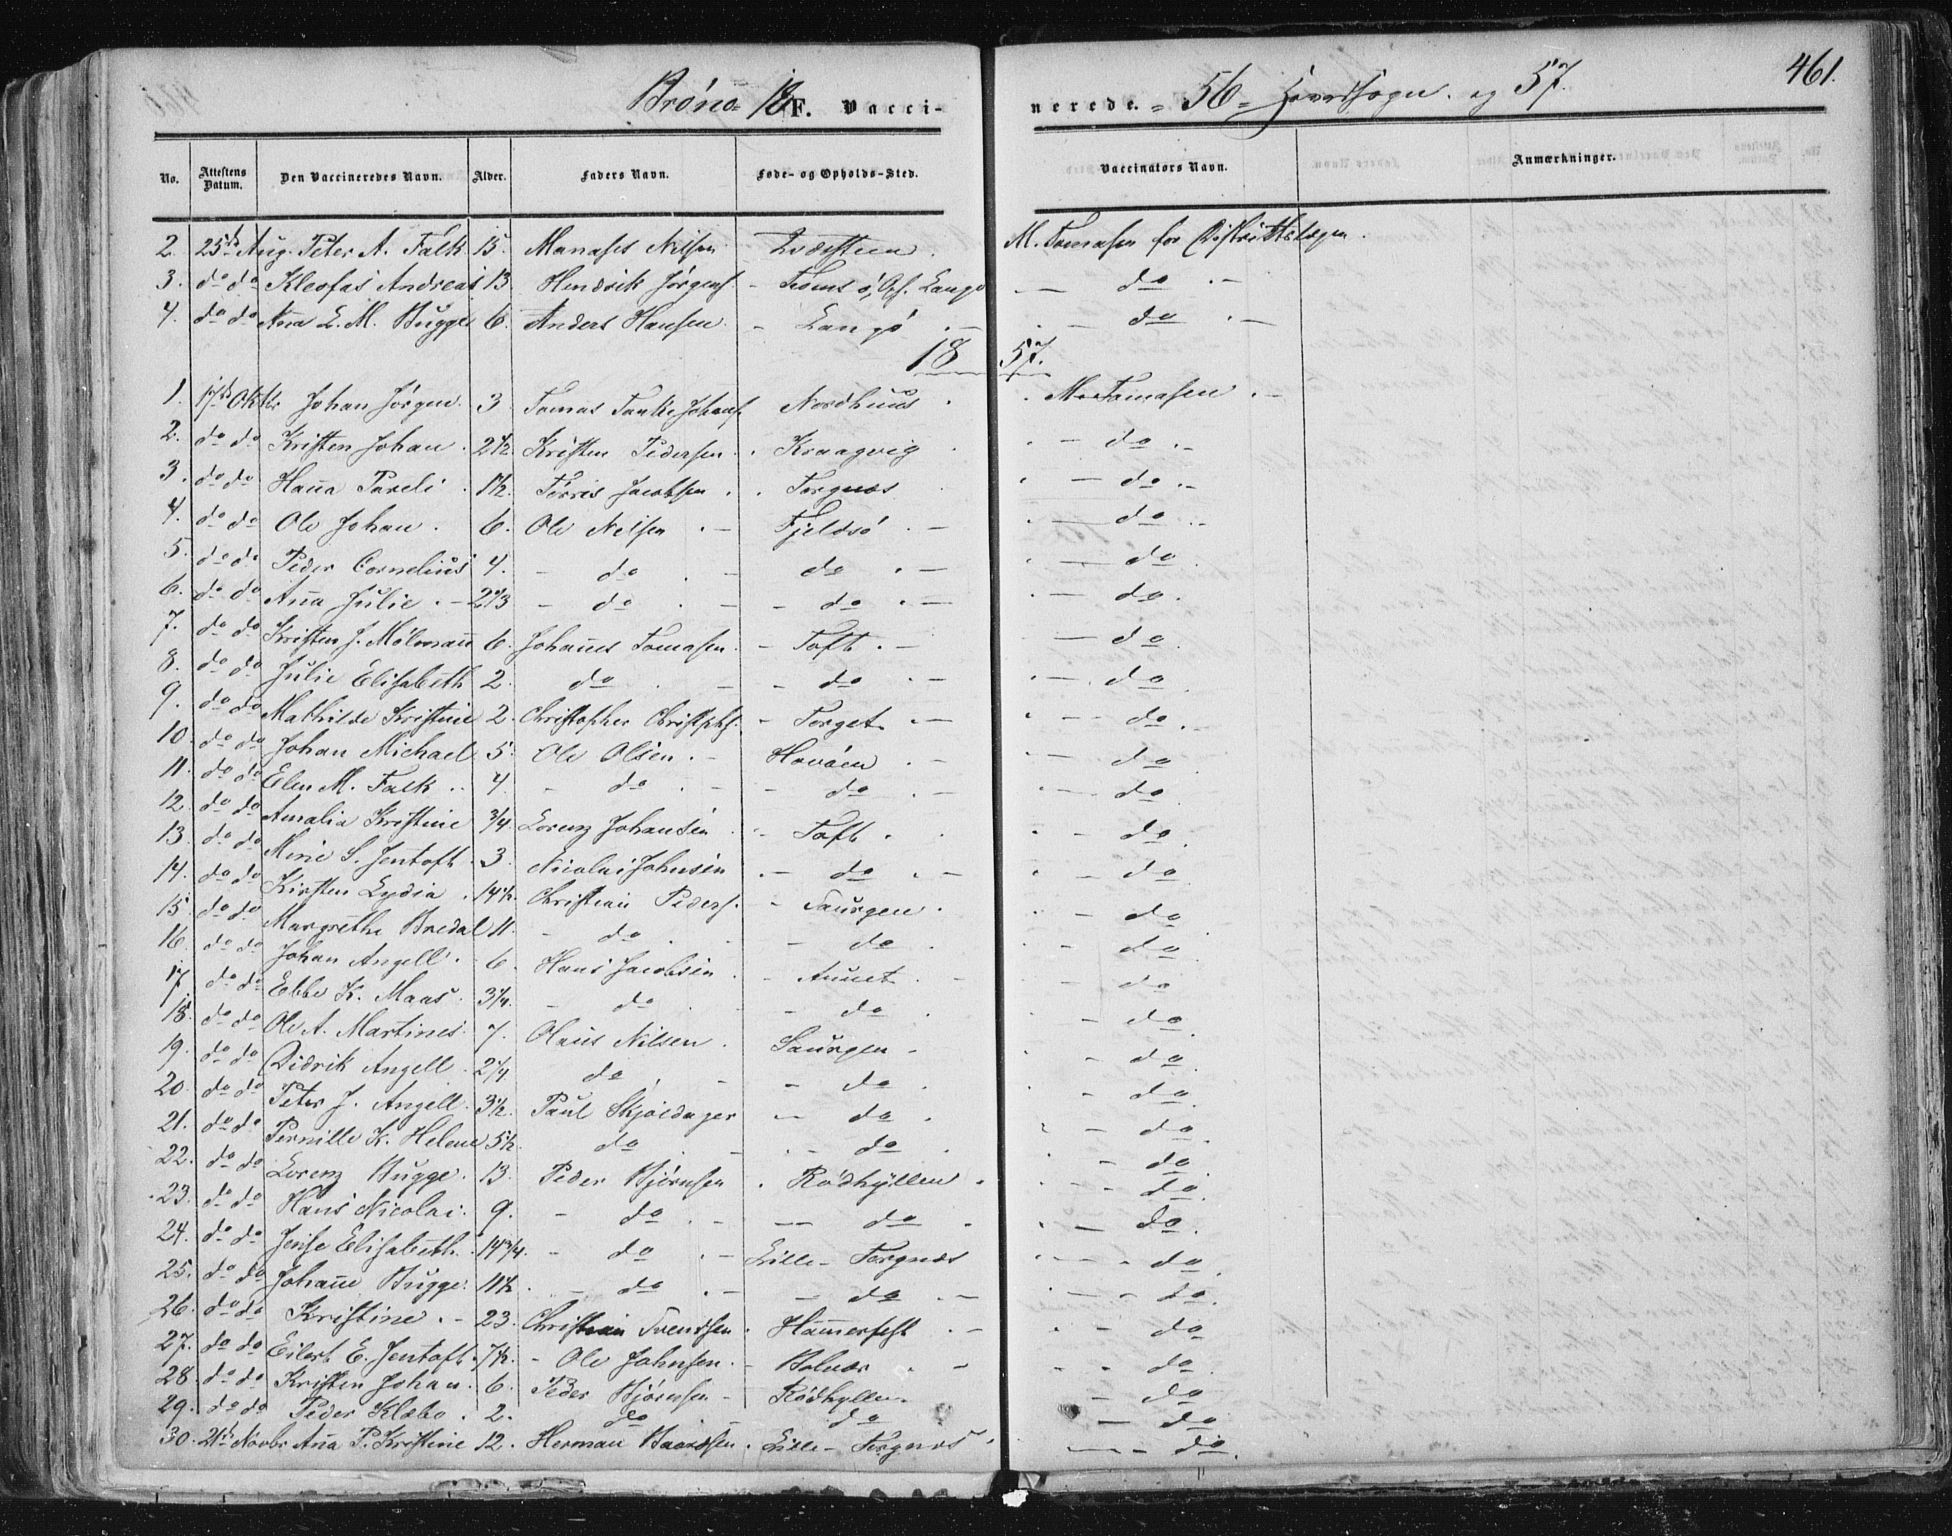 Brönö 18 F. Vacci-nerede. 56 Hovedsogn. og 57. 461.
No. Attestens Datum. Den Vaccineredes Navn. Alder. Faders Navn. Føde- og Opholds-Sted. Vaccinators Navn. Anmærkninger.
2. 25de Aug. Peter A. Falk 15. Manases Nilsen M. Tomasen for Distriktslægen.
3. do do Kleofas Andreas 13 Hendrik Jörgens. - Tromsö, Langö - do -
4. do do Aña E. M. Bugge 6. Anders Hansen - Langö - do -
1857.
1. 17de Oktbr Johan Jörgen. 3 Tomas Tanke Johans. Nordhuus M. Tomasen
2. do do Kristen Johan. 2½ Kristen Pedersen. Kraagvig - do -
3. do do Haña Pareli. 1½. Törris Jacobsen. Torgnæs - do -
4. do do Ole Johan. 6. Ole Nilsen - Fjeldsö - do -
5. do do Peder Cornelius 4. - do - do - do
6. do do Aña Julie. - 2⅔ - do - do - do.
7. do do Kristen J. Mölmañ 6. Johañes Tomasen - Toft. - do.
8. do do Julie Elisabeth 2. do - do - do
9. do do Mathilde Kristine 2. Christopher Christphs. - Torget. - do.
10. do do Johan Michael 5. Ole Olsen. - Havöen - do
11. do do Elen M. Falk. 4. - do - do - do
12. do do Amalia Kristine ¾. Lorenz Johansen - Toft. - do
13. do do Mine S. Jentoft. 3. Nicolai Johnsen - do - do
14. do do Kirsten Lydia. 14½. Christian Peders. - Saurgen. - do
15. do do Margrethe Bredal 11. - do - do - do
16. do do Johan Angell. 6. Hans Jacobsen - - do
17. do do Ebbe K. Maas. 3¼. - do - do - do
18. do do Ole A. Martines. 7. Olaus Nilsen. Saurgen - - do
19. do do Didrik Angell. 2¼. do - do - do
20. do do Peter J. Angell. 3½. Paul Skjeldager - do - do
21. do do Pernille K. Helene 5½. do - do - do
22. do do Lorenz Bugge. 13. Peder Björnsen. Rödhyllen - do
23. do do Hans Nicolai. 9. - do - do - do
24. do do Jense Elisabeth. 14¾. - do - Lille-Torgnæs - do
25. do do Johañe Bugge. 11½. - do - do - do.
26. do do Kristine. - 23. Christian Svendsen. Hamerfest - do
27. do do Eilert E. Jentoft. 7½. - Ole Johnsen. - Bolvær - do
28. do do Kristen Johan. 6. Peder Björnsen - Rödhyllen. - do
29. do do Peder Klæbo. 2. do do - do
30. 21de Novbr Aña P. Kristine 12. Herman Baardsen. Lille-Torgnæs - do.